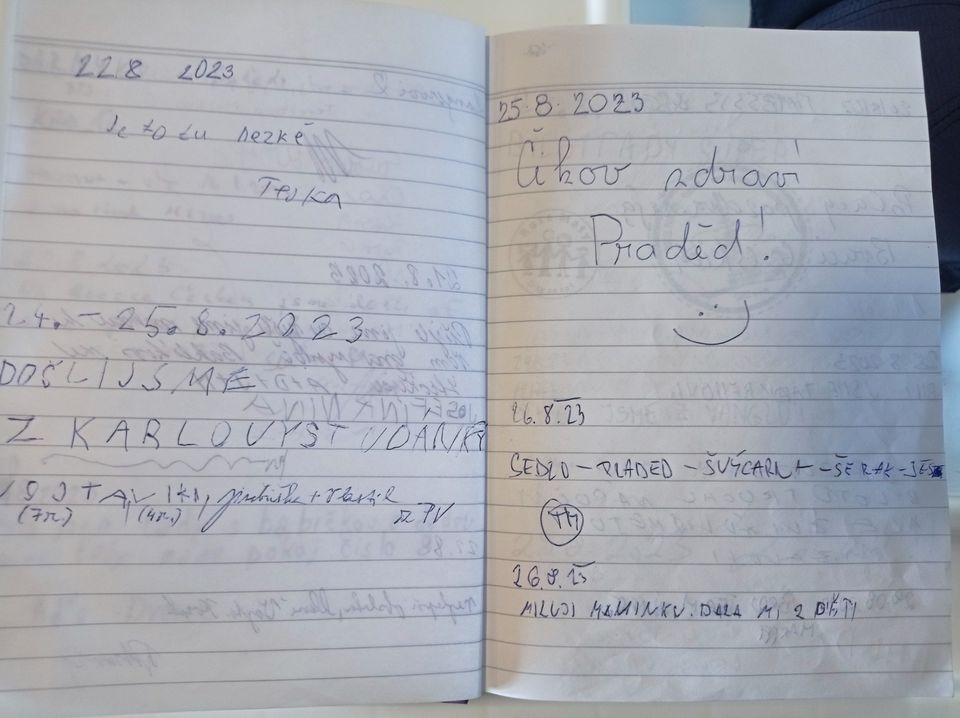 22 8 2023
Je to tu hezké
Terka
24. - 25. 8. 2023
DOŠLI JSME
Z KARLOVY STUDÁNKY
(7r.) (4r.)
z PV
25.8.2023
Čikov zdraví
Praděd!
26.8.23
SEDLO - PRADED - ŠVÝCARNA - ŠERÁK - JES
TH
26.8.23
MILUJI MAMINKU. DALA MI 2 DĚTI